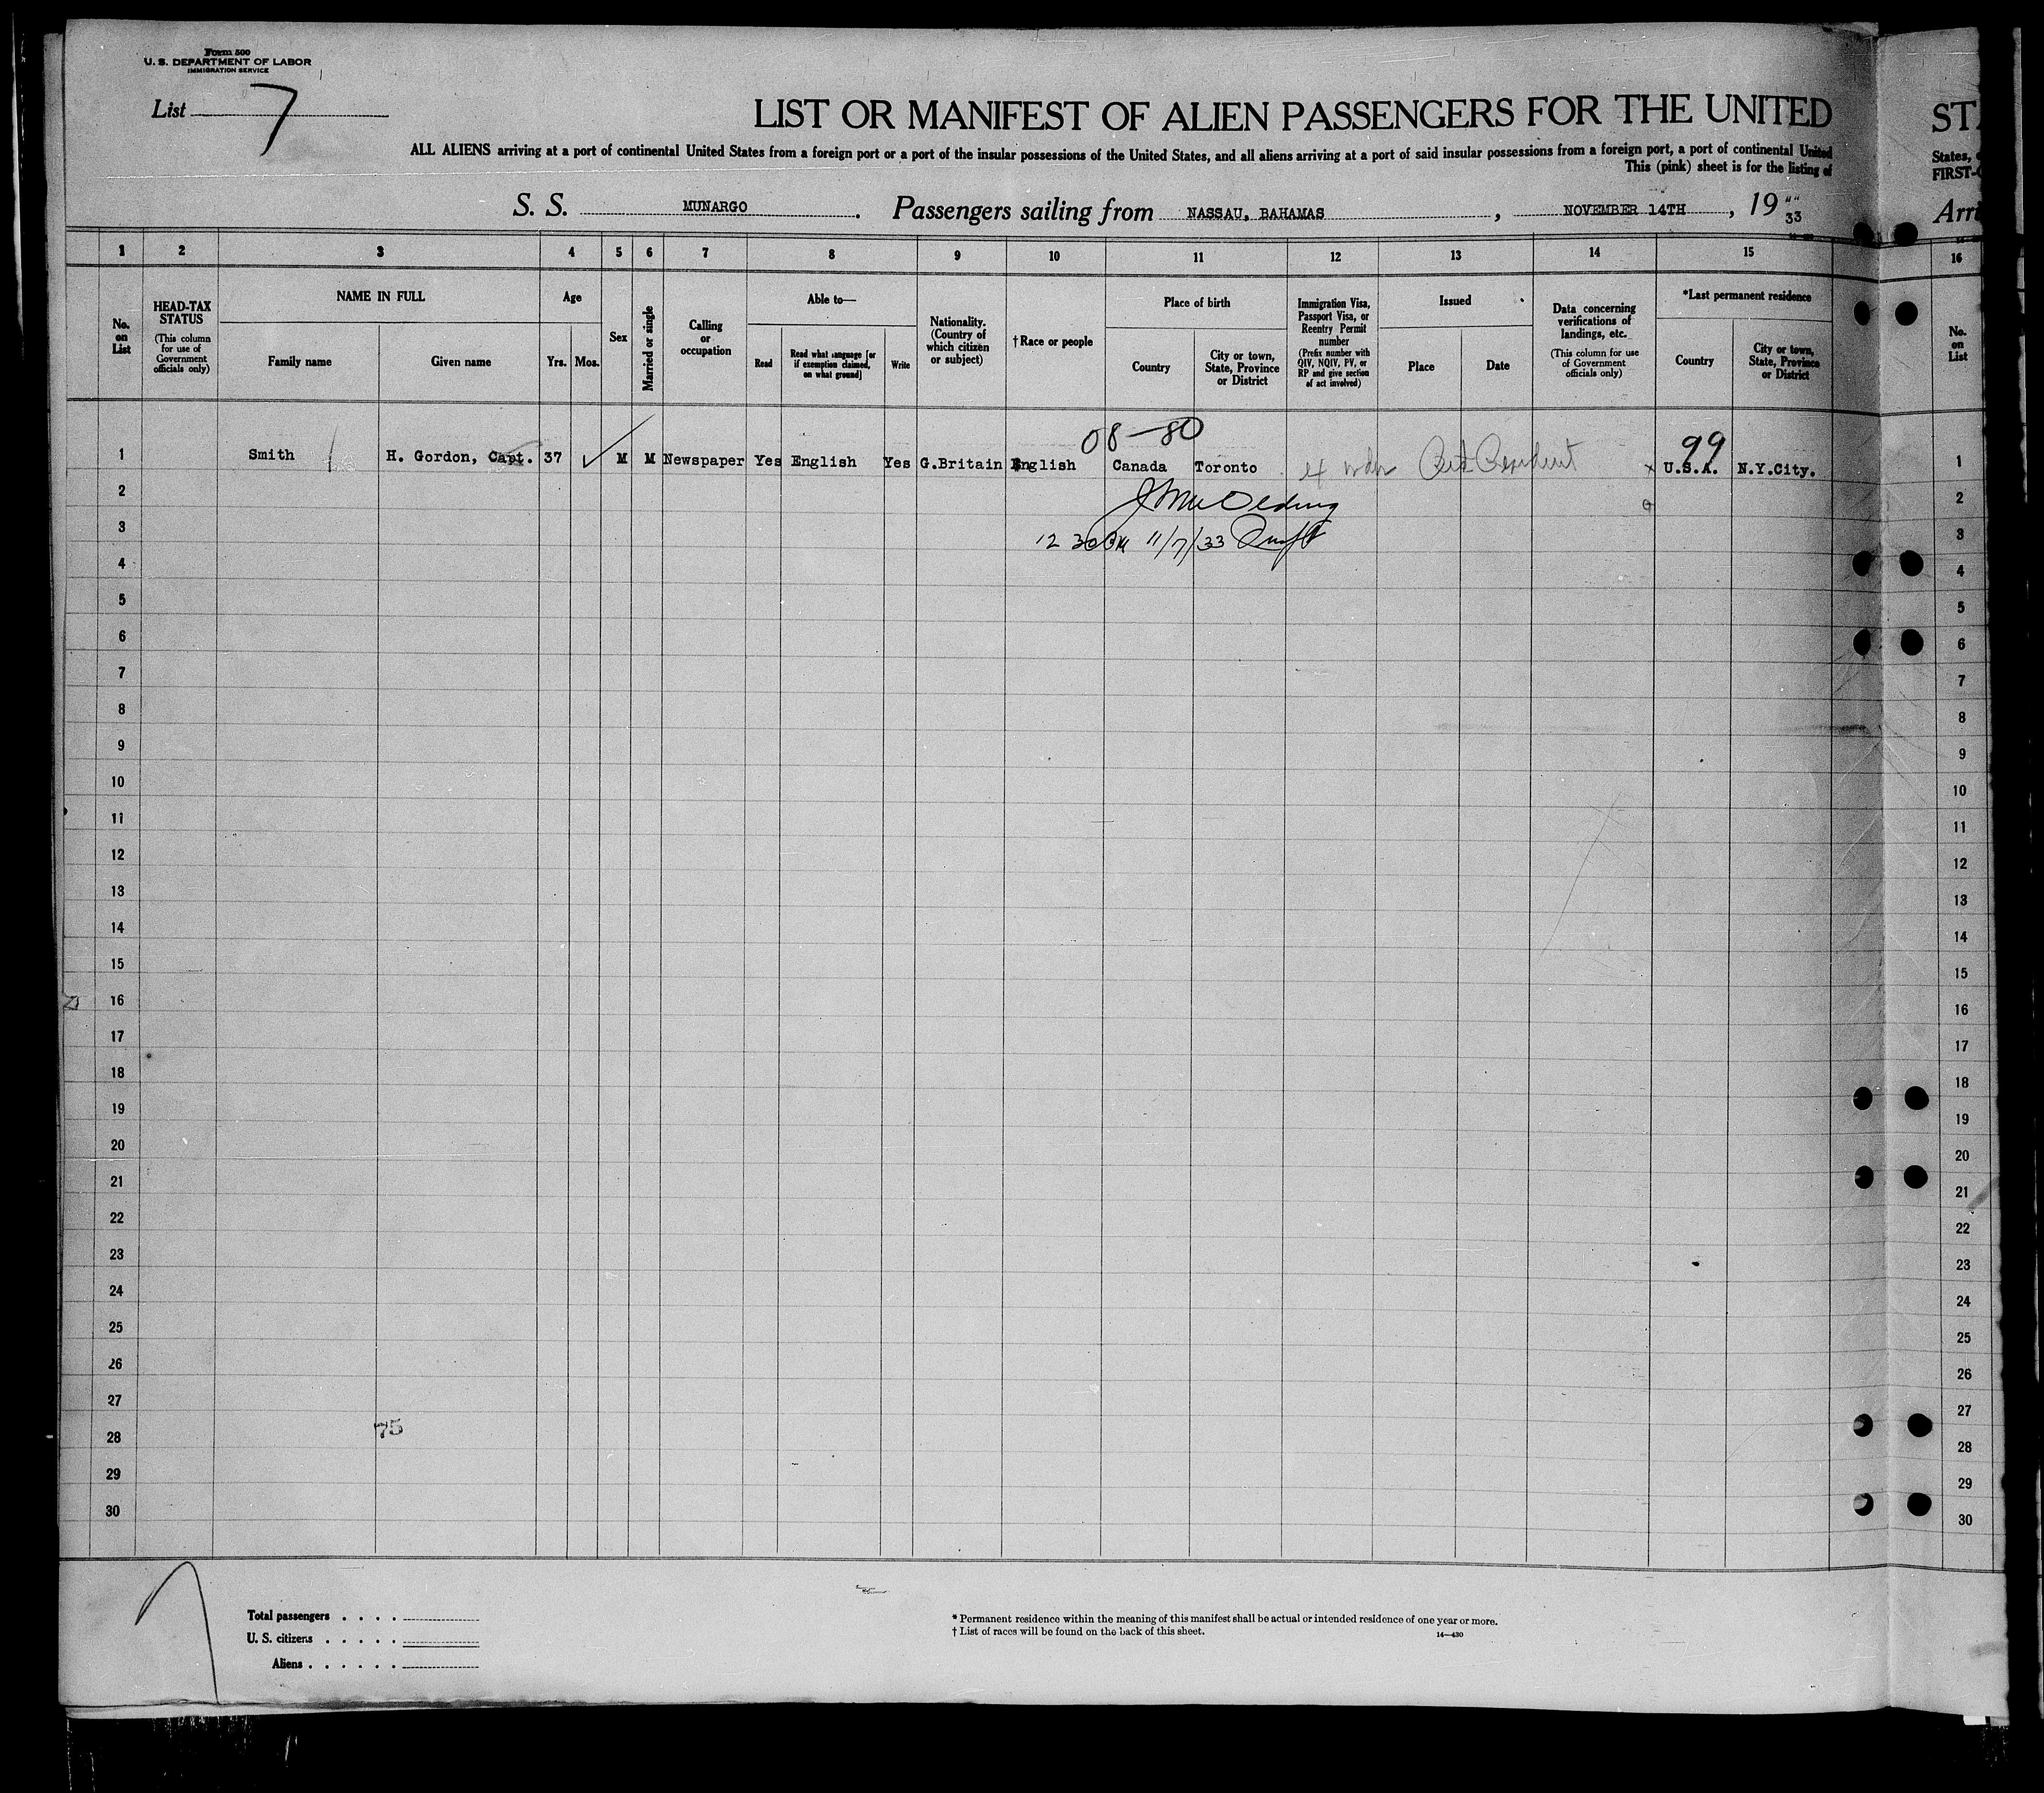 Form 500
U. S. DEPARTMENT OF LABOR
IMMIGRATION SERVICE
List 7
LIST OR MANIFEST OF ALIEN PASSENGERS FOR THE UNITED
STA
ALL ALIENS arriving at a port of continental United States from a foreign port or a port of the insular possessions of the United States, and all aliens arriving at a port of said insular possessions from a foreign port, a port of continental United
States,
This (pink) sheet is for the listing of
FIRST-C
S. S. MUNARGO . Passengers sailing from NASSAU, BAHAMAS , NOVEMBER 14TH , 19 33
Arri
1 2 3 4 5 6 7 8 9 10 11 12 13 14 15 16
No. on List
HEAD-TAX STATUS
(This column for use of Government officials only)
NAME IN FULL
Family name
Given name
Age
Yrs.
Mos.
Sex
Married or single
Calling or occupation
Able to—
Read
Read what language [or if exemption claimed, on what ground]
Write
Nationality. (Country of which citizen or subject)
†Race or people
Place of birth
Country
City or town, State, Province or District
Immigration Visa, Passport Visa, or Reentry Permit number
(Prefix number with QIV, NQIV, PV, or RP and give section of act involved)
Issued
Place
Date
Data concerning verifications of landings, etc.
(This column for use of Government officials only)
*Last permanent residence
Country
City or town, State, Province or District
No. on List
08—80
99
1 Smith H. Gordon, Capt. 37 M M Newspaper Yes English Yes G.Britain English Canada Toronto x U.S.A. N.Y.City. 1
2 2
3 11/7/33 3
4 4
5 5
6 6
7 7
8 8
9 9
10 10
11 11
12 12
13 13
14 14
15 15
16 16
17 17
18 18
19 19
20 20
21 21
22 22
23 23
24 24
25 25
26 26
27 27
75
28 28
29 29
30 30
Total passengers . . . .
U. S. citizens . . . . .
Aliens . . . . . .
* Permanent residence within the meaning of this manifest shall be actual or intended residence of one year or more.
† List of races will be found on the back of this sheet.
14—430